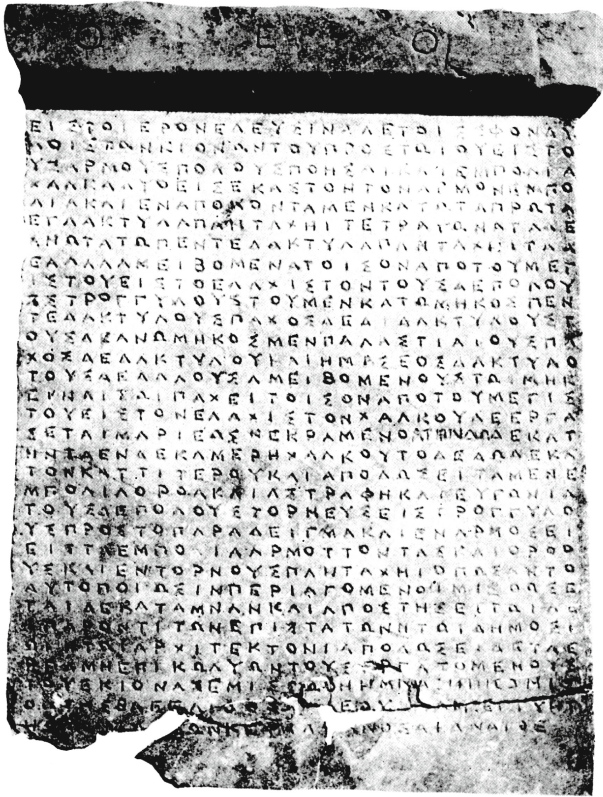 ΘΕΟΙ
ΕΙΣΤΟΙΕΡΟΝΕΛΕΥΣΙΝΑΔΕΤΟΙΣΣΦΟΝΔΥ
ΛΟΙΣΤΩΝΚΙΟΝΩΝΤΟΥΠΡΟΣΤΩΙΟΥΕΙΣΤΟ
ΥΣΑΡΜΟΥΣΠΟΛΟΥΣΠΟΗΣΑΙΚΑΙΕΜΠΟΛΙΑ
ΧΑΛΚΑΔΥΟΕΙΣΕΚΑΣΤΟΝΤΟΝΑΡΜΟΝΕΜΠΟ
ΛΙΑΚΑΙΕΝΑΠΟΛΟΝΤΑΜΕΝΚΑΤΩΤΑΠΡΩΤΑ
ΕΓΔΑΚΤΥΛΑΠΑΝΤΑΧΗΙΤΕΤΡΑΓΩΝΑΤΑΔΕ
ΑΝΩΤΑΤΩΠΕΝΤΕΔΑΚΤΥΛΑΠΑΝΤΑΧΗΙΤΑΔ
ΕΑΛΛΑΑΜΕΙΒΟΜΕΝΑΤΟΙΣΟΝΑΠΟΤΟΥΜΕΓ
ΙΣΤΟΥΕΙΣΤΟΕΛΑΧΙΣΤΟΝΤΟΥΣΔΕΠΟΛΟΥ
ΣΣΤΡΟΓΓΥΛΟΥΣΤΟΥΜΕΝΚΑΤΩΜΗΚΟΣΠΕΝ
ΤΕΔΑΚΤΥΛΟΥΣΠΑΧΟΣΔΕΔΙΔΑΚΤΥΛΟΥΣΤ
ΟΥΣΔΕΑΝΩΜΗΚΟΣΜΕΝΠΑΛΑΣΤΙΑΙΟΥΣΠΑ
ΧΟΣΔΕΔΑΚΤΥΛΟΥΚΑΙΗΜΙΣΕΟΣΔΑΚΤΥΛΟ
ΤΟΥΣΔΕΑΛΛΟΥΣΑΜΕΙΒΟΜΕΝΟΥΣΤΩΙΜΗΚ
ΕΙΚΑΙΤΩΙΠΑΧΕΙΤΟΙΣΟΝΑΠΟΤΟΥΜΕΓΙΣ
ΤΟΥΕΙΣΤΟΝΕΛΑΧΙΣΤΟΝΧΑΛΚΟΥΔΕΕΡΓΑ
ΣΕΤΑΙΜΑΡΙΕΩΣΚΕΚΡΑΜΕΝΟΥΤΗΝΔΩΔΕΚΑΤ
ΗΝΤΑΕΝΔΕΚΑΜΕΡΗΧΑΛΚΟΥΤΟΔΕΔΩΔΕΚΑ
ΤΟΝΚΑΤΤΙΤΕΡΟΥΚΑΙΑΠΟΔΩΣΕΙΤΑΜΕΝΕ
ΜΠΟΛΙΑΟΡΘΑΚΑΙΑΣΤΡΑΦΗΚΑΙΕΥΓΩΝΙΑ
ΤΟΥΣΔΕΠΟΛΟΥΣΤΟΡΝΕΥΣΕΙΣΤΡΟΓΓΥΛΟ
ΥΣΠΡΟΣΤΟΠΑΡΑΔΕΙΓΜΑΚΑΙΕΝΑΡΜΟΣΕΙ
ΕΙΣΤΑΕΜΠΟΛΙΑΑΡΜΟΤΤΟΝΤΑΣΚΑΙΟΡΘΟ
ΥΣΚΑΙΕΝΤΟΡΝΟΥΣΠΑΝΤΑΧΗΙΟΠΩΣΑΝΤΟ
ΑΥΤΟΠΟΙΩΣΙΝΠΕΡΙΑΓΟΜΕΝΟΙΜΙΣΘΩΣΕ
ΤΑΙΔΕΚΑΤΑΜΝΑΝΚΑΙΑΠΟΣΤΗΣΕΙΤΩΙΑΡ
ΤΙΤΩΝΕΠΙΣΤΑΤΩΝΤΩΙΔΗΜΟΣΙ
ΤΩΙΑΡΧΙΤΕΚΤΟΝΙΑΠΟΔΩΣΕΙ
ΜΗΕΠΙΚΩΛΥΩΝΤΟΥΣΕΡΓΑΖΟΜΕΝΟΥΣ
ΤΟΥΣΚΙΟΝΑΣΕΜΙΣΘΩΘΗΗΜΝΑ